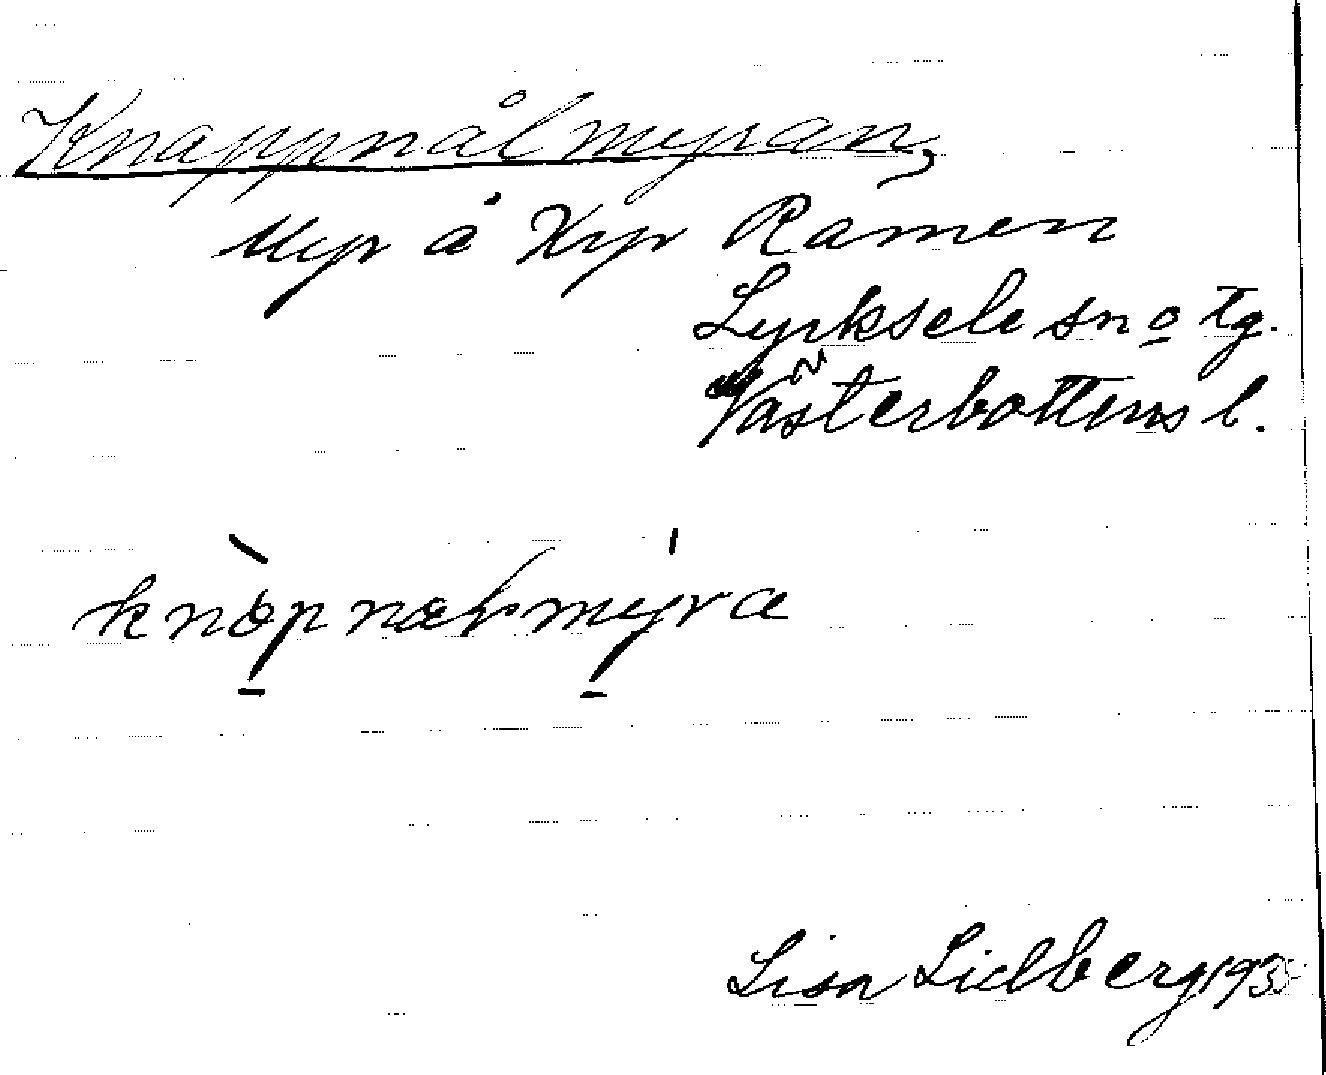 Knappnålmyran,
Myr å Kryp Ramen
Lycksele sn o tg.
Västerbottens l.
Lisa Lidberg 1935